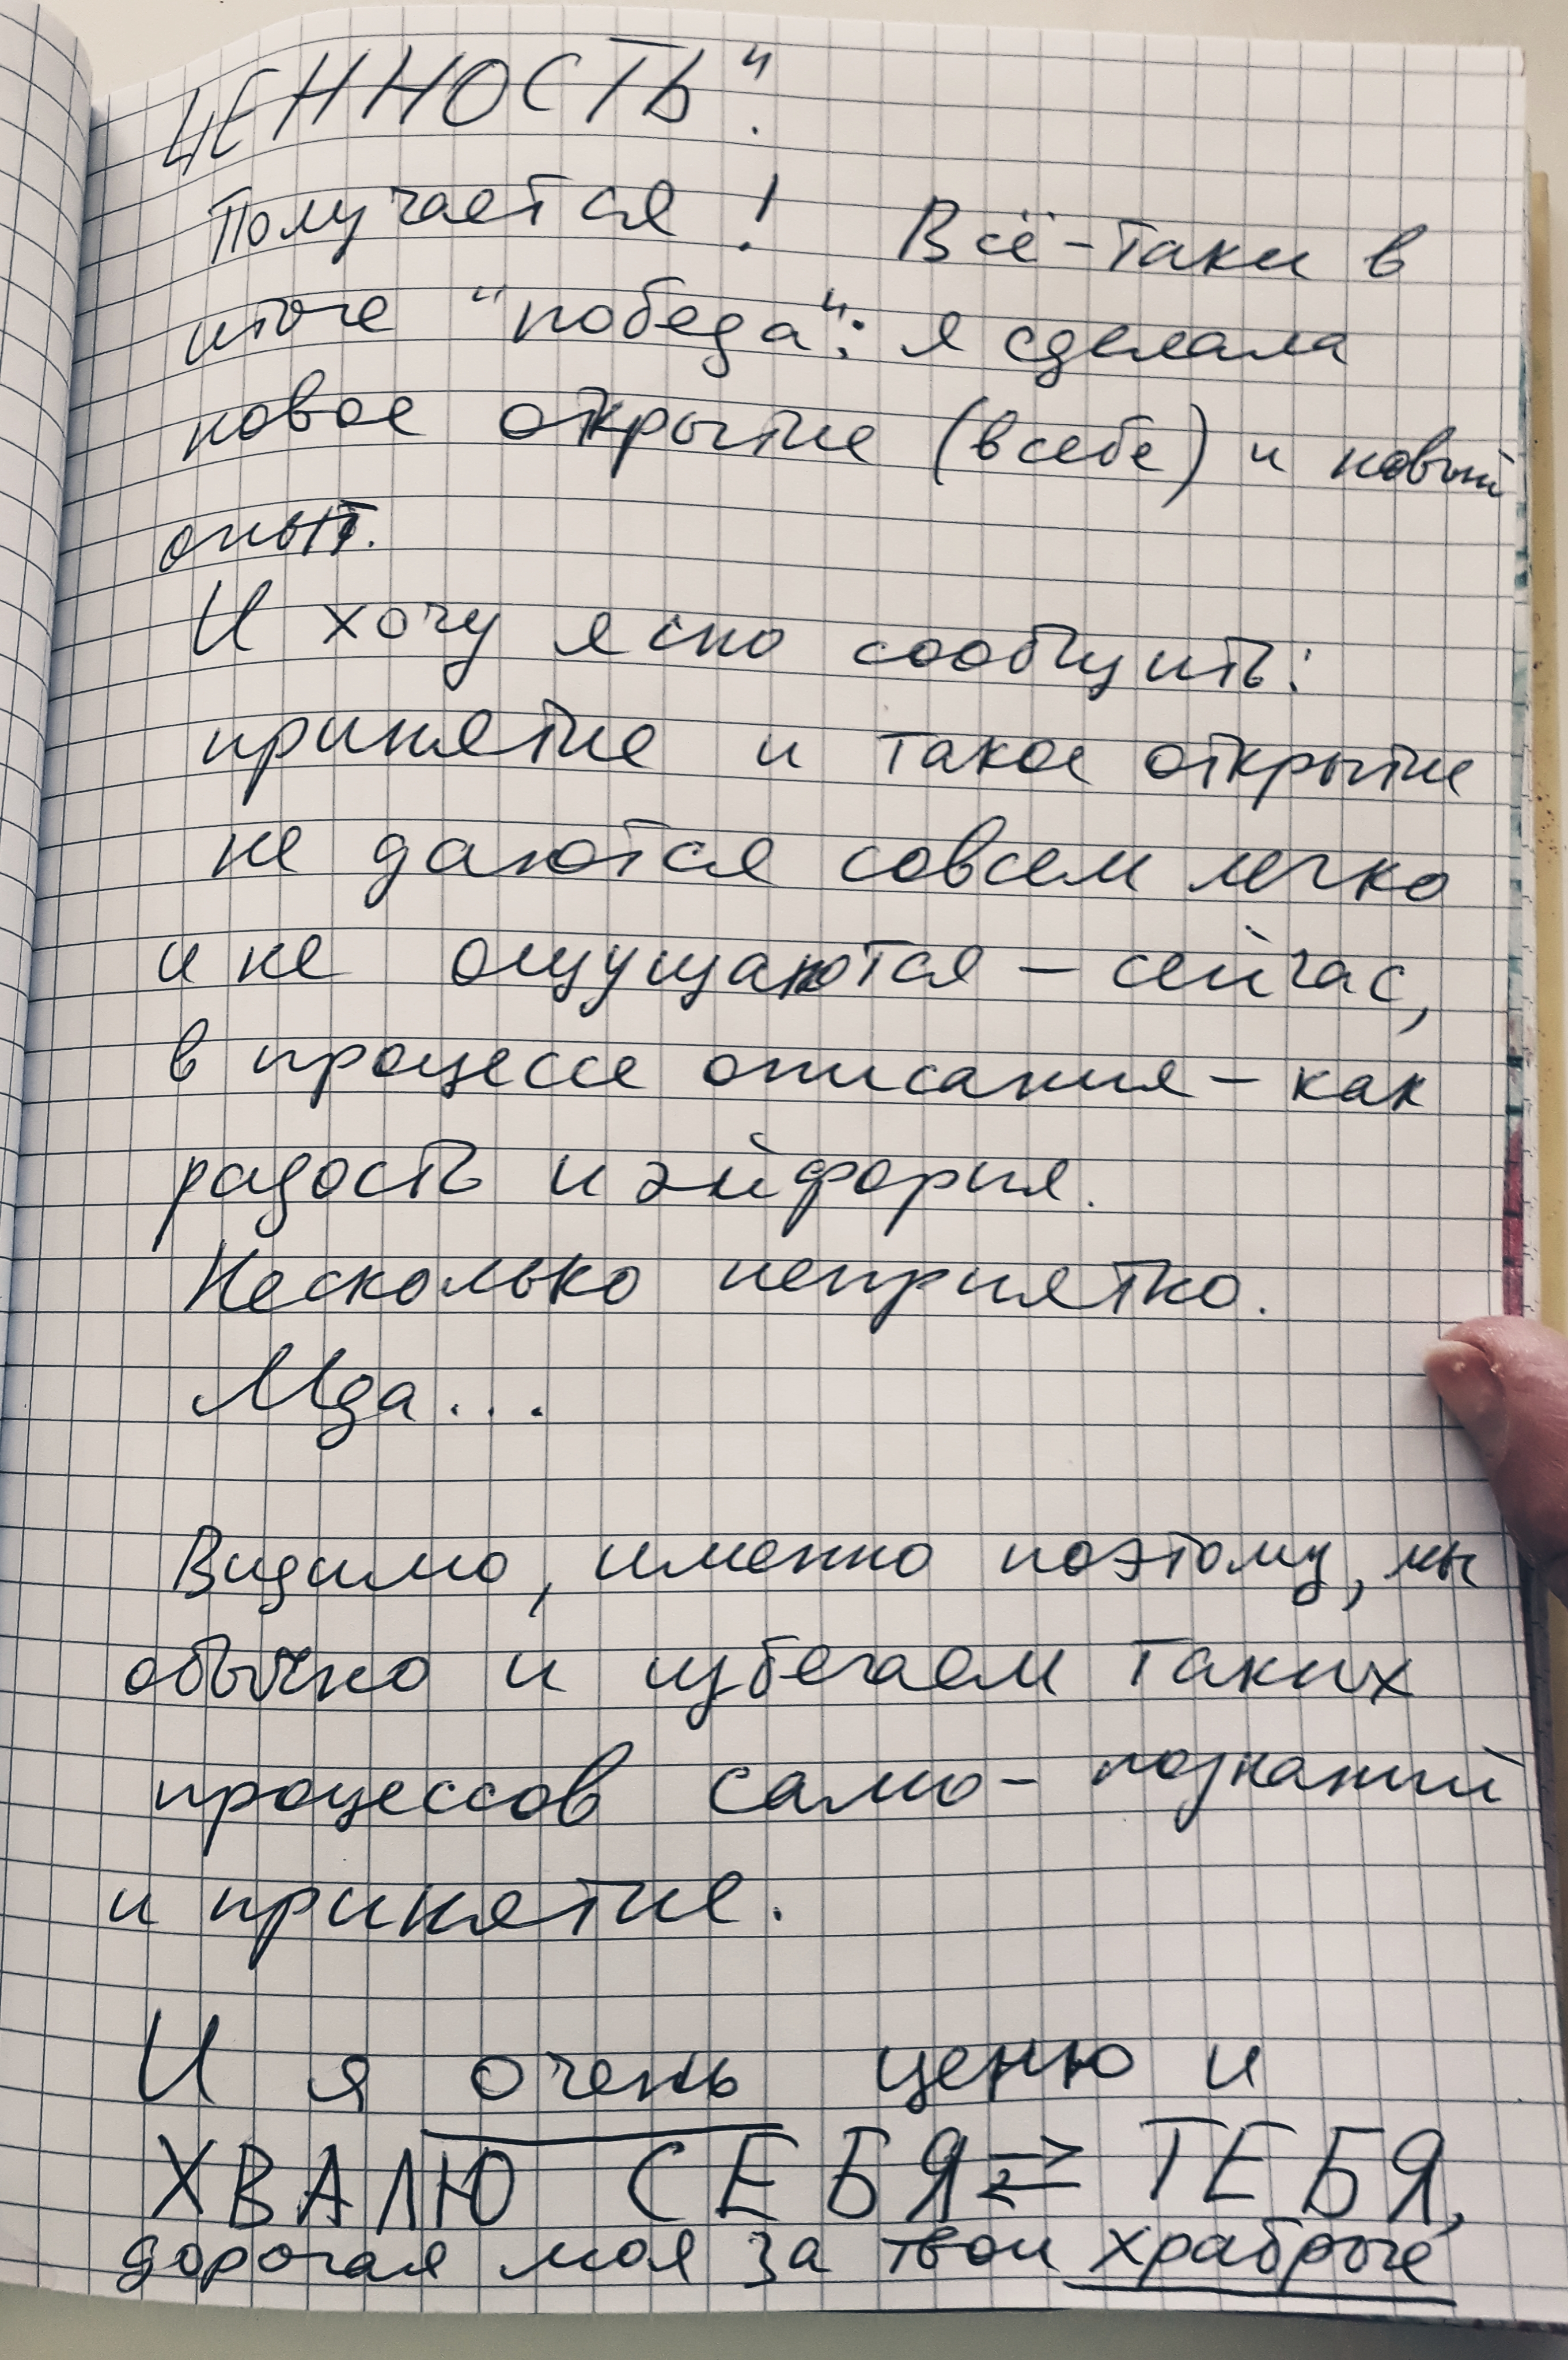 ЦЕННОСТЬ".
Получается! Всё-таки в
итоге "победа": я сделала
новое открытие (в себе) и новый
опыт.
И хочу ясно сообщить:
принятие и такое открытие
не даются совсем легко
и не ощущаются – сейчас,
в процессе описания – как
радость и эйфория.
Несколько неприятно.
Мда...
Видимо, именно поэтому, мы
обычно и избегаем таких
процессов само-познаний
и принятие.
И я очень ценю и
ХВАЛЮ СЕБЯ ⇄ ТЕБЯ,
дорогая моя за твои храбрые